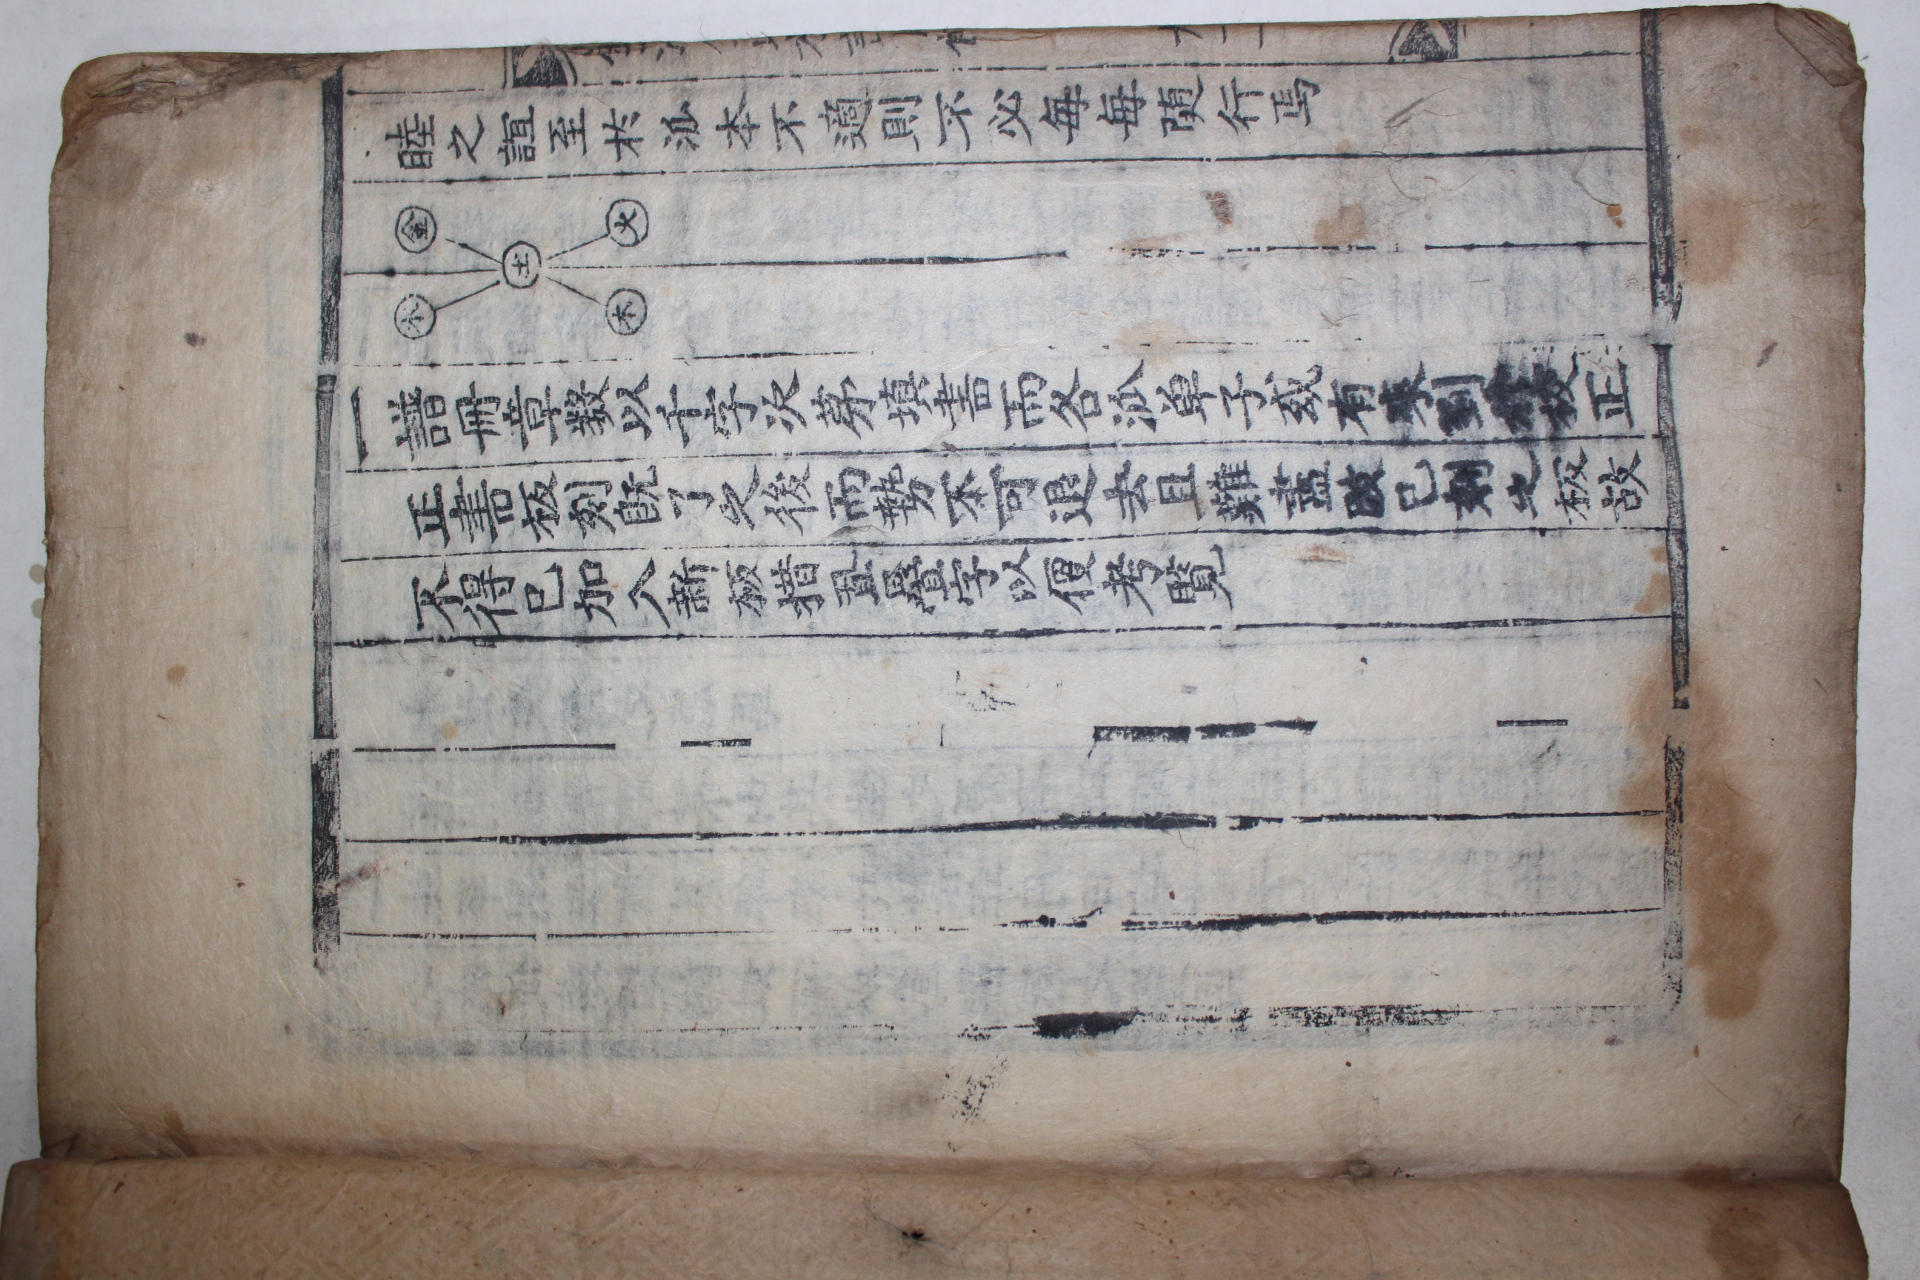 睦之誼至於派本不適則不必每每随行焉
金 水
土
火 木
一譜冊章数以千字次苐填書而各派单子或有來到於校正
正書板刻既了之後而勢不可退去且難盡改已刻之板故
不得已加入新板措且疊字以便考覧